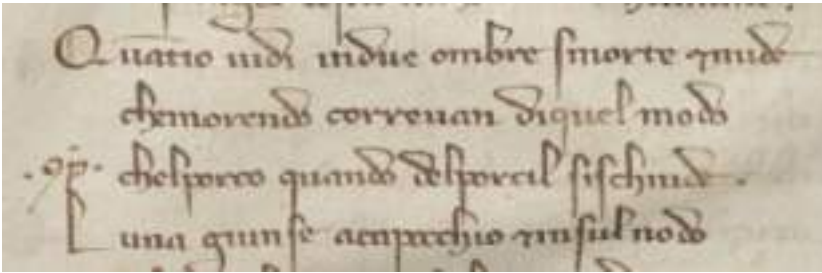 Quātio uidi indue ombre smorte ⁊nude
chemorendo correuan diquel modo
chelporco quando delporcil sischiude .
Luna giunse acapocchio ⁊insul nodo